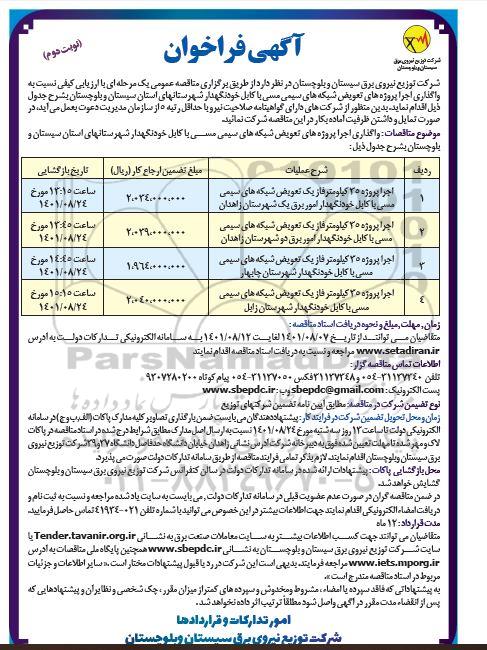 شرکت توزیع نیروی برق
سیستان وبلوچستان
آگهی فراخوان
(نوبت دوم)
شرکت توزیع نیروی برق سیستان و بلوچستان در نظر دارد از طریق برگزاری مناقصه عمومی یک مرحله ای با ارزیابی کیفی نسبت به
واگذاری اجرا پروژه های تعویض شبکه های سیمی مسی با کابل خودنگهدار شهرستانهای استان سیستان و بلوچستان بشرح جدول
ذیل اقدام نماید، بدین منظور از شرکت های دارای گواهینامه صلاحیت نیرو با حداقل رتبه ۵ از سازمان مدیریت دعوت بعمل می آید، در
صورت تمایل و داشتن ظرفیت آماده بکار در این مناقصه شرکت نمائید.
موضوع مناقصات: واگذاری اجرا پروژه های تعویض شبکه های سیمی مسـی با کابل خودنگهدار شهرستانهای استان سیستان و
بلوچستان بشرح جدول ذیل:
ردیف شرح عملیات مبلغ تضمین ارجاع کار (ریال) تاریخ بازگشایی
۱ اجرا پروژه ۳۵ کیلومتر فاز یک تعویض شبکه های سیمی مسی با کابل خودنگهدار امور برق یک شهرستان زاهدان ۲،۰۳٤،۰۰۰،۰۰۰ ساعت ۱۳:۱۵ مورخ ۱٤۰۱/۰۸/۲٤
۲ اجرا پروژه ۳۵ کیلومتر فاز یک تعویض شبکه های سیمی مسی با کابل خودنگهدار امور برق دو شهرستان زاهدان ۲،۰۳۹،۰۰۰،۰۰۰ ساعت ۱۳:٤۵ مورخ ۱٤۰۱/۰۸/۲٤
۳ اجرا پروژه ۳۵ کیلومتر فاز یک تعویض شبکه های سیمی مسی با کابل خودنگهدار شهرستان چابهار ۱،۹٦٤،۰۰۰،۰۰۰ ساعت ۱٤:٤۵ مورخ ۱٤۰۱/۰۸/۲٤
٤ اجرا پروژه ۳۵ کیلومتر فاز یک تعویض شبکه های سیمی مسی با کابل خودنگهدار شهرستان زابل ۲،۰٤۰،۰۰۰،۰۰۰ ساعت ۱۵:۱۵ مورخ ۱٤۰۱/۰۸/۲٤
زمان، مهلت، مبلغ و نحوه دریافت اسناد مناقصه:
متقاضیان مـی تواننـد از تاریـخ ۱٤۰۱/۰۸/۰۷ لغایـت ۱٤۰۱/۰۸/۱۲ بـه سـامانه الکترونیکی تـدارکات دولـت به آدرس
www.setadiran.ir مراجعه و نسبت به دریافت اسناد مناقصه اقدام نمایند
اطلاعات تماس مناقصه گزار:
تلفن ۳۱۱۳۷۳٤۰-۰۵٤ و ۳۱۱۳۷۳٤۸ فکس ۳۱۱۳۷۰۵۰-۰۵٤ پیام کوتاه ۹۳۰۷۲۸۰۲۰۰
پست الکترونیک: sbepdc@gmail.com وب: www.sbepdc.ir
نوع تضمین شرکت در مناقصه: مطابق آیین نامه تضمین شرکتهای توزیع
زمان و محل تحویل تضمین شرکت در فرایند کار: پیشنهاددهندگان می بایست ضمن بارگذاری تصاویر کلیه مدارک پاکات (الف، ب و ج) در سامانه
الکترونیکی دولت تا ساعت ۱۲ روز سه شنبه مورخ ۱٤۰۱/۰۸/۲٤ نسبت به ارسال اصل مدارک مطابق شرایط درج شده در اسناد مناقصه در پاکات
لاک و مهر شده تا مهلت تعیین شده فوق به دبیرخانه شرکت آدرس نشانی زاهدان خیابان دانشگاه حدفاصل دانشگاه ۲۷ و ۲۹ شرکت توزیع نیروی
برق سیستان وبلوچستان اقدام نمایند. لازم بذکر تمامی فرایند مناقصه از طریق سامانه تدارکات دولت صورت می پذیرد.
محل بازگشایی پاکات: پیشنهادات ارائه شده در سامانه تدارکات دولت در سالن کنفرانس شرکت توزیع نیروی برق سیستان و بلوچستان
گشایش خواهد شد.
در ضمن مناقصه گران در صورت عدم عضویت قبلی در سامانه تدارکات دولت، می بایست به سایت یاد شده مراجعه و نسبت به ثبت نام و
دریافت امضاء الکترونیکی اقدام نمایند جهت اطلاعات بیشتر در این خصوص می توانید با شماره تلفن ۰۲۱-٤۱۹۳٤ تماس حاصل فرمایید.
مدت قرارداد: ۱۲ ماه
متقاضیان می توانند جهت کسب اطلاعات بیشتـر به سـایت معاملات صنعت برق به نشـانی Tender.tavanir.org.ir یا
سایت شـرکت توزیع نیروی برق سیستان و بلوچسـتان به نشـانی www.sbepdc.ir همچنین پایگاه ملی مناقصات به آدرس
www.iets.mporg.ir مراجعه فرمایند. بدیهی است این شرکت در رد یا قبول پیشنهادات مختار است. «سایر اطلاعات و جزئیات
مربوط در اسناد مناقصه مندرج است».
به پیشنهاداتی که فاقد سپرده یا امضاء، مشروط و مخدوش و سپرده های کمتر از میزان مقرر، چک شخصی و نظایر آن و پیشنهادهایی که
پس از انقضاء مدت مقرر در آگهی واصل شود مطلقاً ترتیب اثر داده نخواهد شد.
امور تدارکات و قراردادها
شرکت توزیع نیروی برق سیستان وبلوچستان